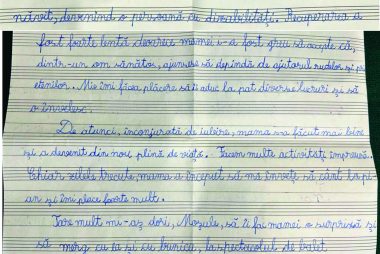 năvit, devenind o persoană cu dizabilități. Recuperarea a
fost foarte lentă deoarece mamei i-a fost greu să accepte că,
dintr-un om sănătos, ajunsese să depindă de ajutorul rudelor și pri
etenilor. Mie îmi făcea plăcere să îi aduc la pat diverse lucruri și să
o învelesc.
De atunci, înconjurată de iubire, mama s-a făcut mai bine
și a devenit din nou, plină de viață. Facem multe activități împreună.
Chiar zilele trecute, mama a început să mă învețe să cânt la pi-
an și îmi place foarte mult.
Tare mult mi-aș dori, Moșule, să îi fai mamei o surpriză și
să merg cu ea și cu bunica, la spectacolul de balet